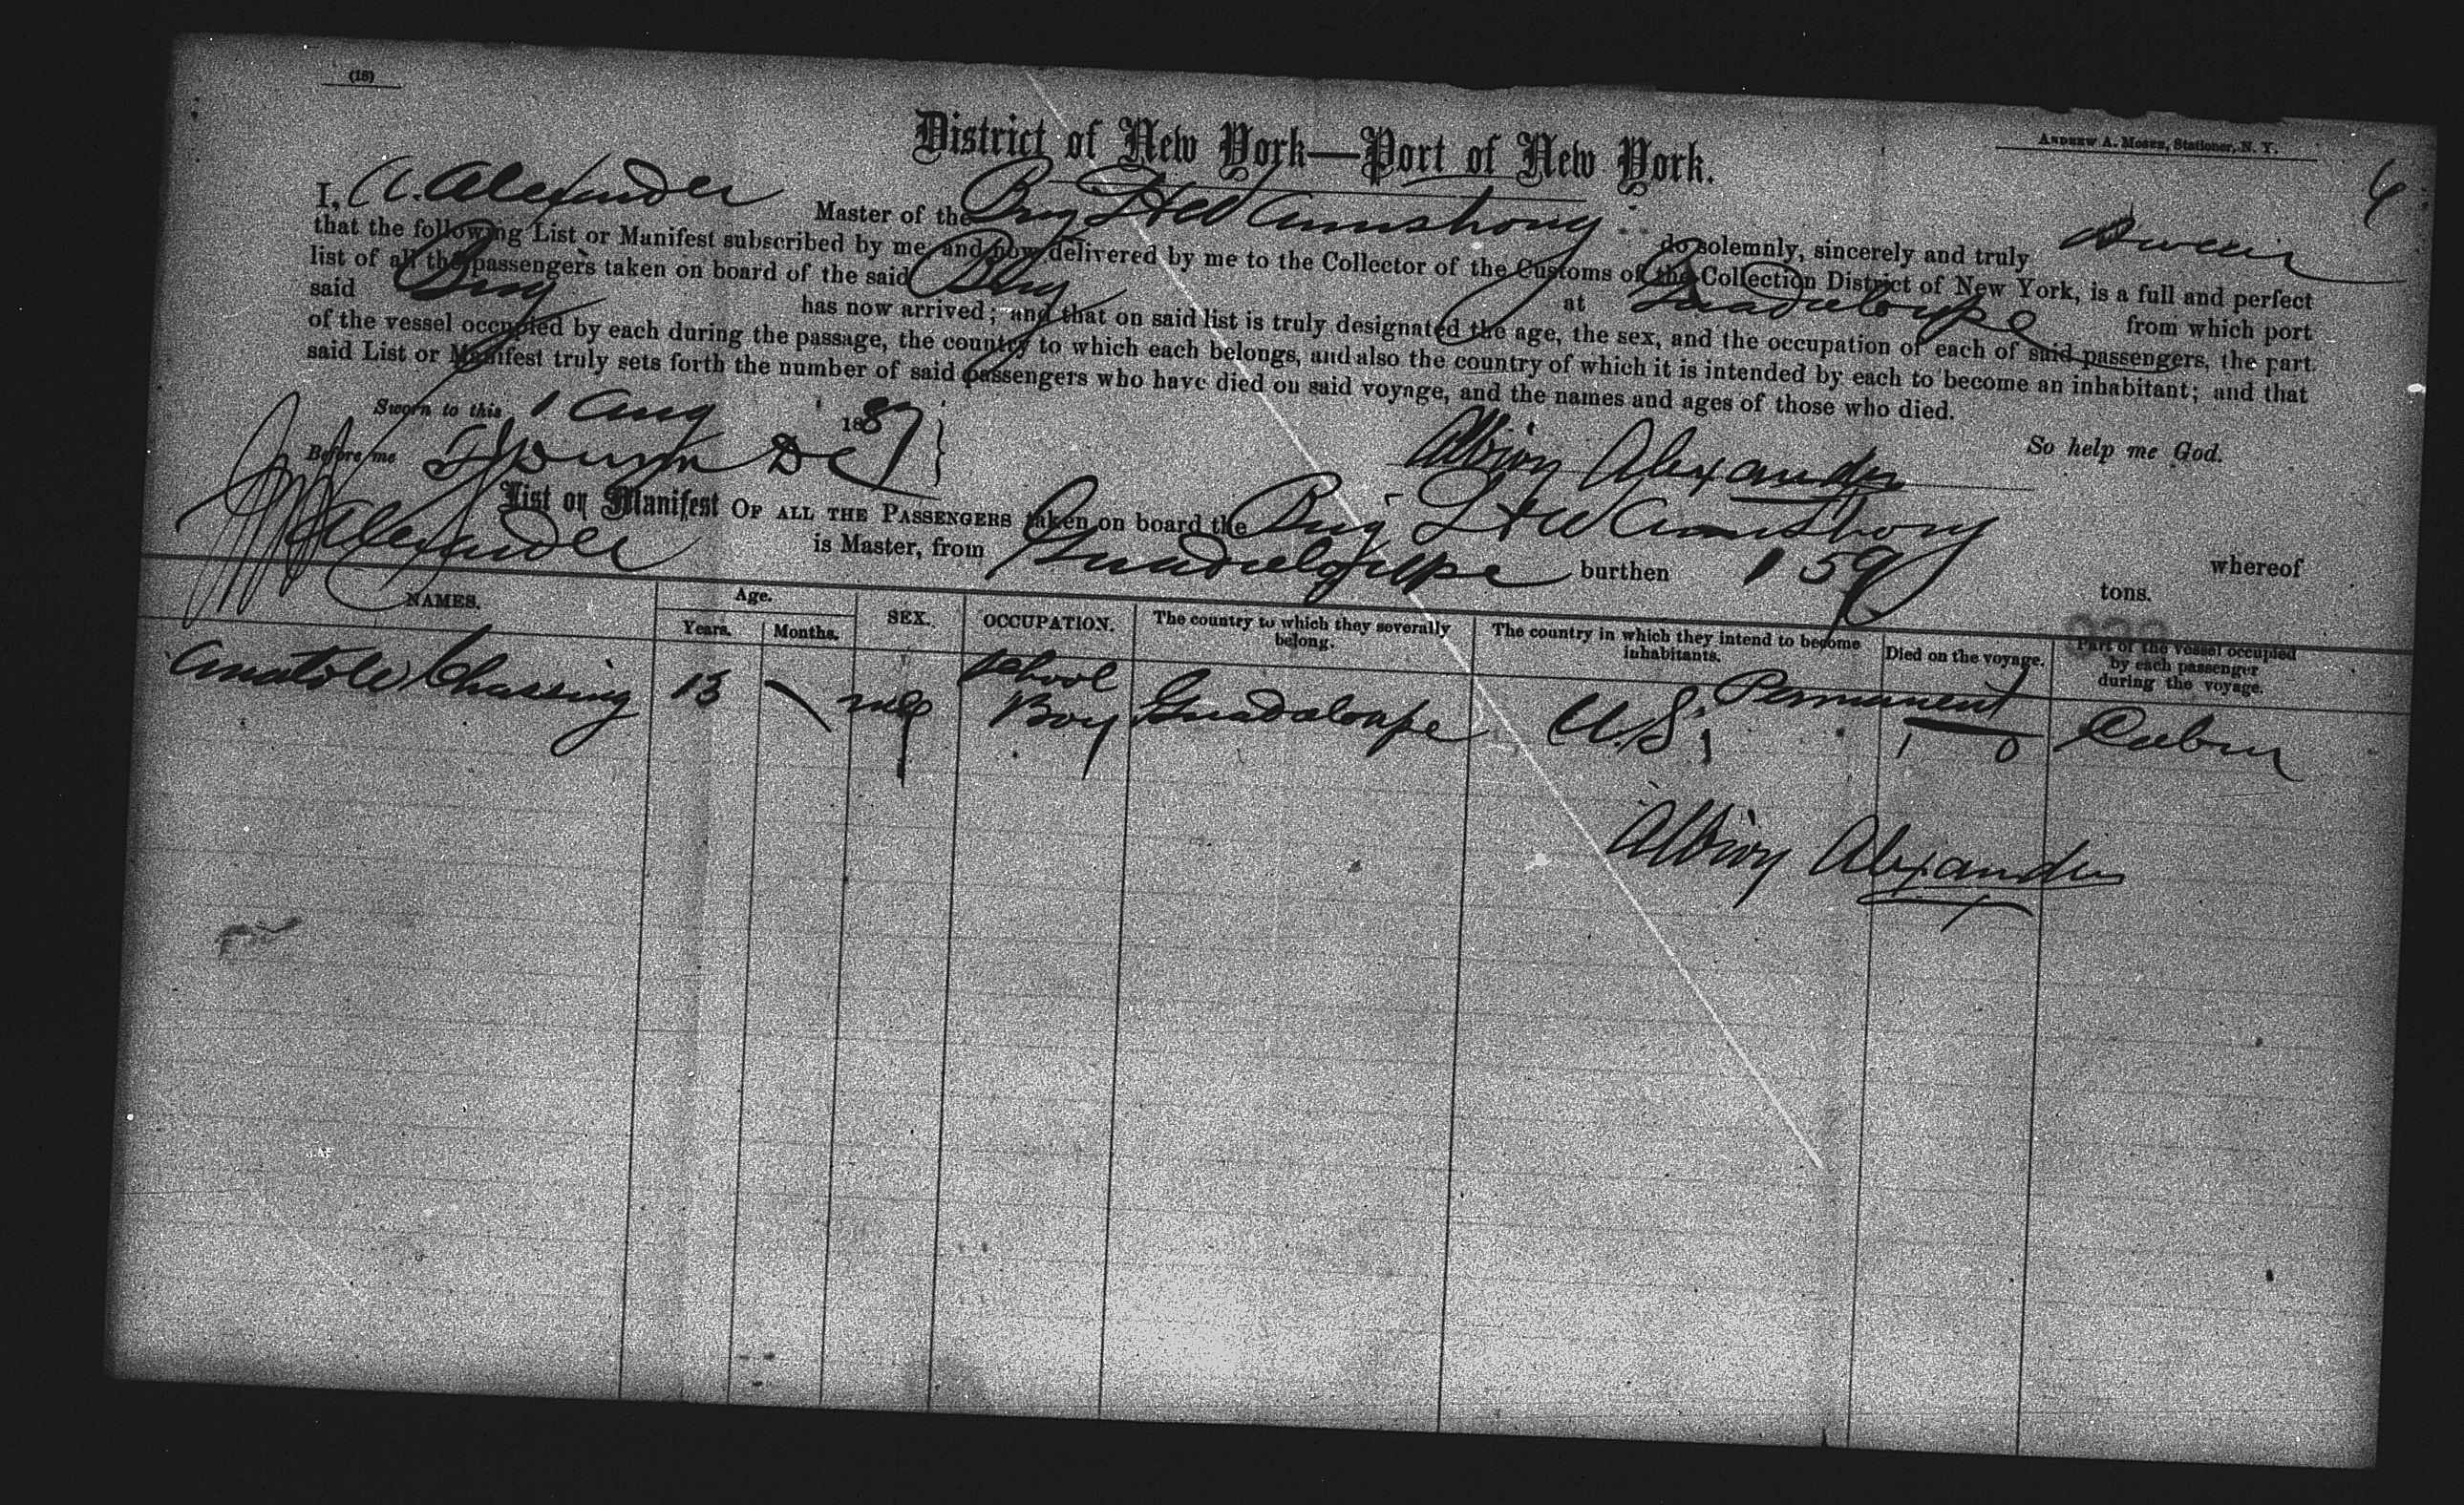 (18)
District of New York—Port of New York.
ANDREW A. MOSES, Stationer, N. Y.
6
I, A. Alexander Master of the Brig L & W Armstrong do solemnly, sincerely and truly Swear
that the following List or Manifest subscribed by me and now delivered by me to the Collector of the Customs of the Collection District of New York, is a full and perfect
list of all the passengers taken on board of the said Brig at Guadeloupe from which port
said Brig has now arrived; and that on said list is truly designated the age, the sex, and the occupation of each of said passengers, the part
of the vessel occupied by each during the passage, the country to which each belongs, and also the country of which it is intended by each to become an inhabitant; and that
said List or Manifest truly sets forth the number of said passengers who have died on said voyage, and the names and ages of those who died.
So help me God.
Sworn to this 1 Aug 1887
Before me DC
Albion Alexander
List or Manifest OF ALL THE PASSENGERS taken on board the Brig L & W Armstrong whereof
Alexander is Master, from Guadeloupe burthen 159 tons.
NAMES. Age. Years. Months. SEX. OCCUPATION. The country to which they severally belong. The country in which they intend to become inhabitants. Died on the voyage. Part of the vessel occupied by each passenger during the voyage.
Anatole Chassing 13 School Boy Guadaloupe U.S. Permanent Cabin
Albion Alexander